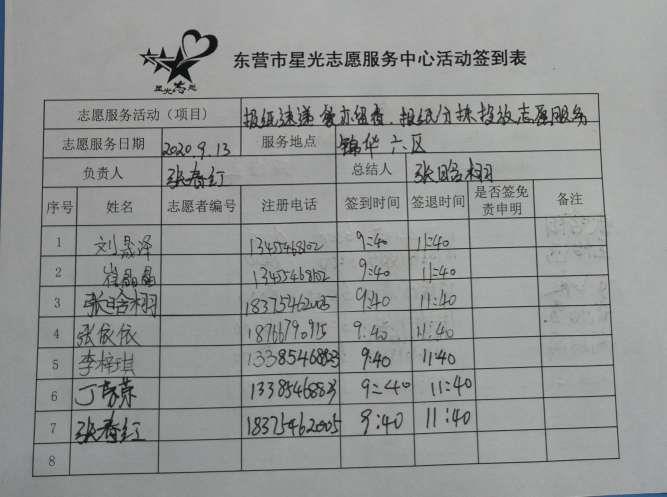 星光志愿
东营市星光志愿服务中心活动签到表
志愿服务活动（项目） 报纸传递 爱亦留香、报纸分拣投放志愿服务
志愿服务日期 2020.9.13 服务地点 锦华六区
负责人 张春红 总结人 张晗栩
序号 姓名 志愿者编号 注册电话 签到时间 签退时间 是否签免责申明 备注
1 刘晟泽 13455468102 9:40 11:40
2 崔晶晶 13455468102 9:40 11:40
3 张晗栩 18375462005 9:40 11:40
4 张依依 18766790915 9:40 11:40
5 李梓琪 13385468823 9:40 11:40
6 丁 9:40 11:40
7 张春红 18375462005 9:40 11:40
8